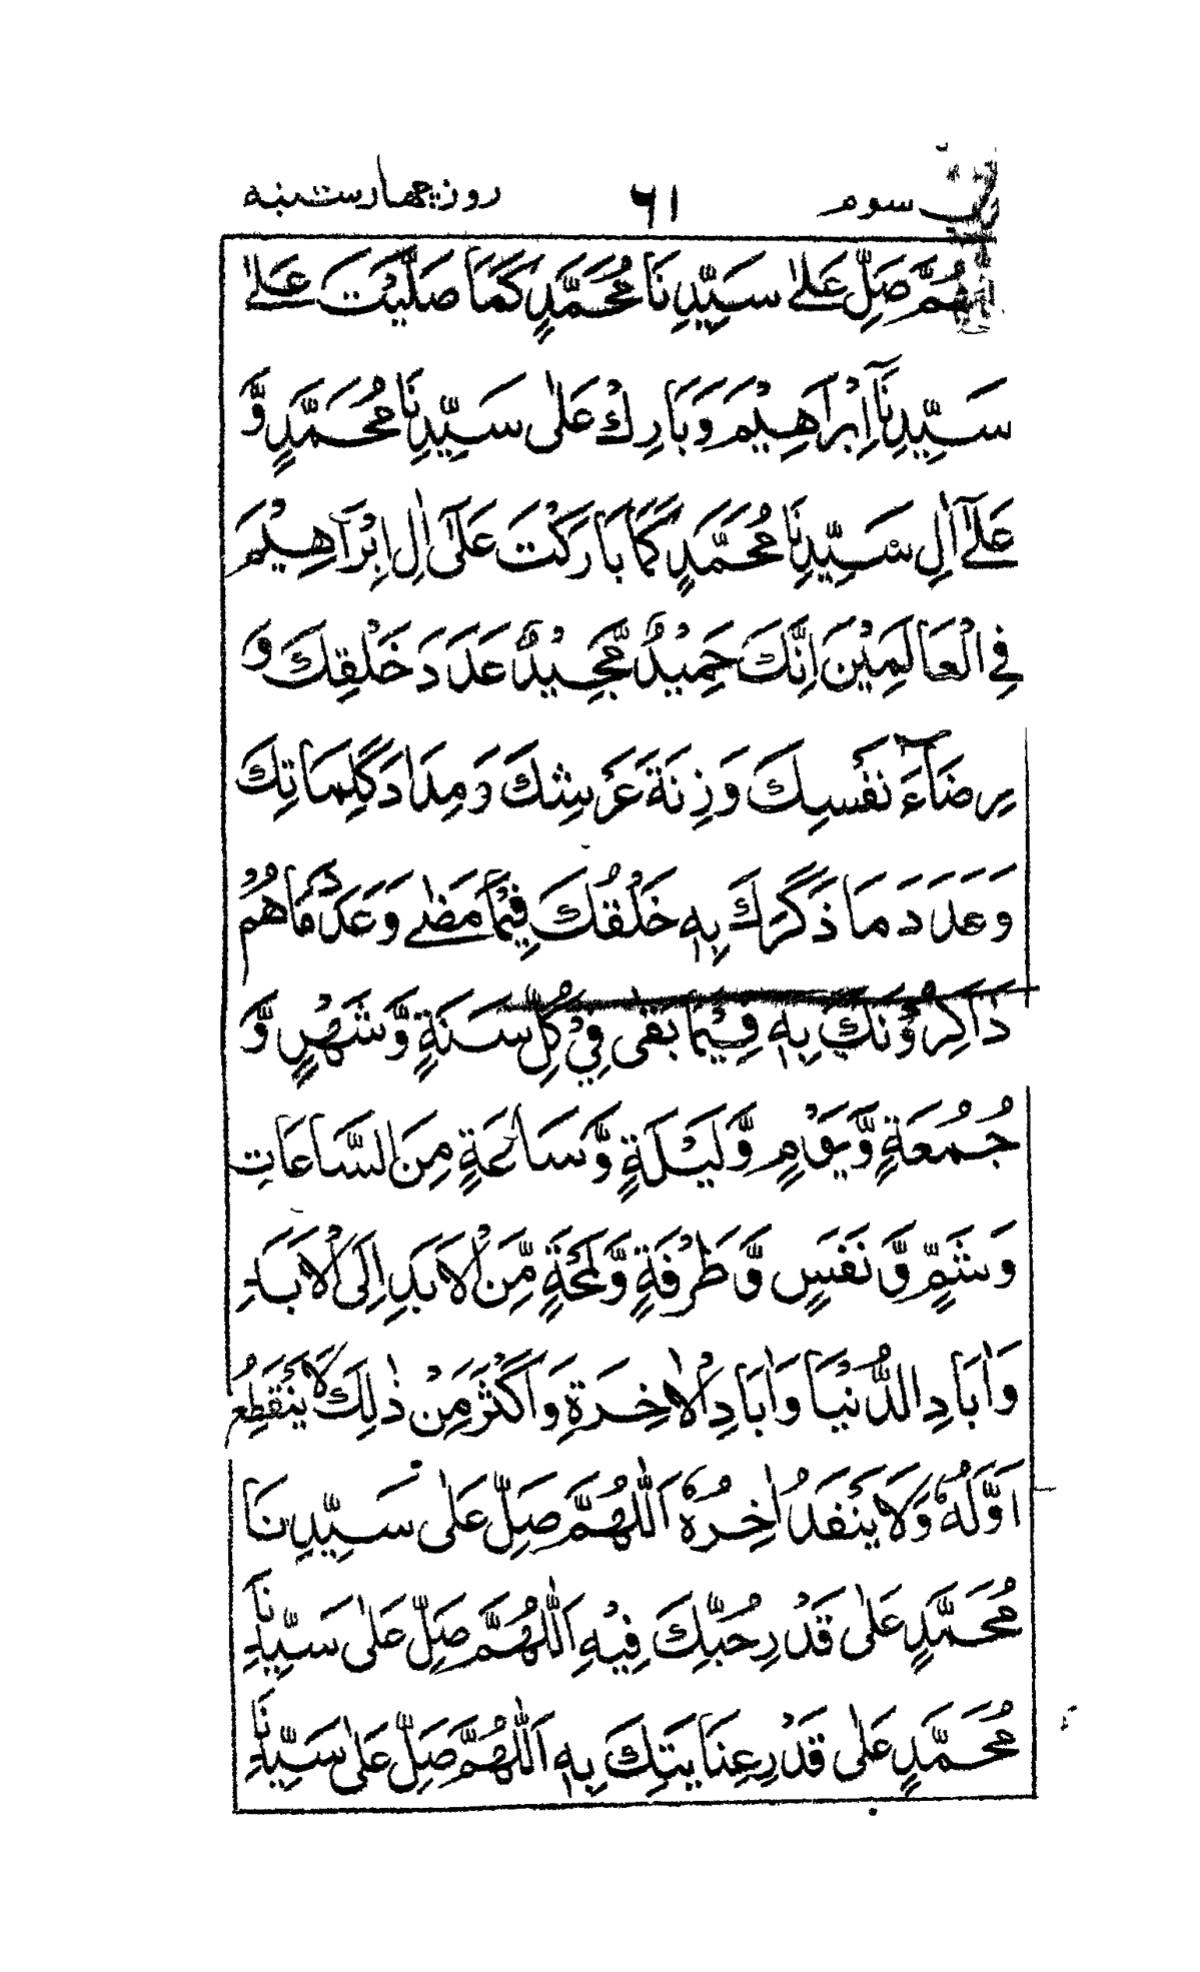 سوم ٦١ روز چهارشنبه
اَللّٰهُمَّ صَلِّ عَلٰى سَيِّدِنَا مُحَمَّدٍ كَمَا صَلَّيْتَ عَلٰى
سَيِّدِنَآ اِبْرَاهِيْمَ وَبَارِكْ عَلٰى سَيِّدِنَا مُحَمَّدٍ وَّ
عَلٰٓى اٰلِ سَيِّدِنَا مُحَمَّدٍ كَمَا بَارَكْتَ عَلٰٓى اٰلِ اِبْرَاهِيْمَ
فِي الْعَالَمِيْنَ اِنَّكَ حَمِيْدٌ مَّجِيْدٌ عَدَدَ خَلْقِكَ وَ
رِضَآءَ نَفْسِكَ وَزِنَةَ عَرْشِكَ وَمِدَادَ كَلِمَاتِكَ
وَعَدَدَ مَا ذَكَرَكَ بِهٖ خَلْقُكَ فِيْمَا مَضٰى وَعَدَدَ مَا هُمْ
ذَاكِرُوْنَكَ بِهٖ فِيْمَا بَقٰى فِيْ كُلِّ سَنَةٍ وَّشَهْرٍ وَّ
جُمُعَةٍ وَّيَوْمٍ وَّلَيْلَةٍ وَّسَاعَةٍ مِنَ السَّاعَاتِ
وَشَمٍّ وَّنَفَسٍ وَّطَرْفَةٍ وَّلَمْحَةٍ مِّنَ الْاَبَدِ اِلَى الْاَبَدِ
وَاٰبَادِ الدُّنْيَا وَاٰبَادِ الْاٰخِرَةِ وَاَكْثَرَ مِنْ ذٰلِكَ لَا يَنْقَطِعُ
اَوَّلُهٗ وَلَا يَنْفَدُ اٰخِرُهٗ اَللّٰهُمَّ صَلِّ عَلٰى سَيِّدِنَا
مُحَمَّدٍ عَلٰى قَدْرِ حُبِّكَ فِيْهِ اَللّٰهُمَّ صَلِّ عَلٰى سَيِّدِنَا
مُحَمَّدٍ عَلٰى قَدْرِ عِنَايَتِكَ بِهٖ اَللّٰهُمَّ صَلِّ عَلٰى سَيِّدِنَا